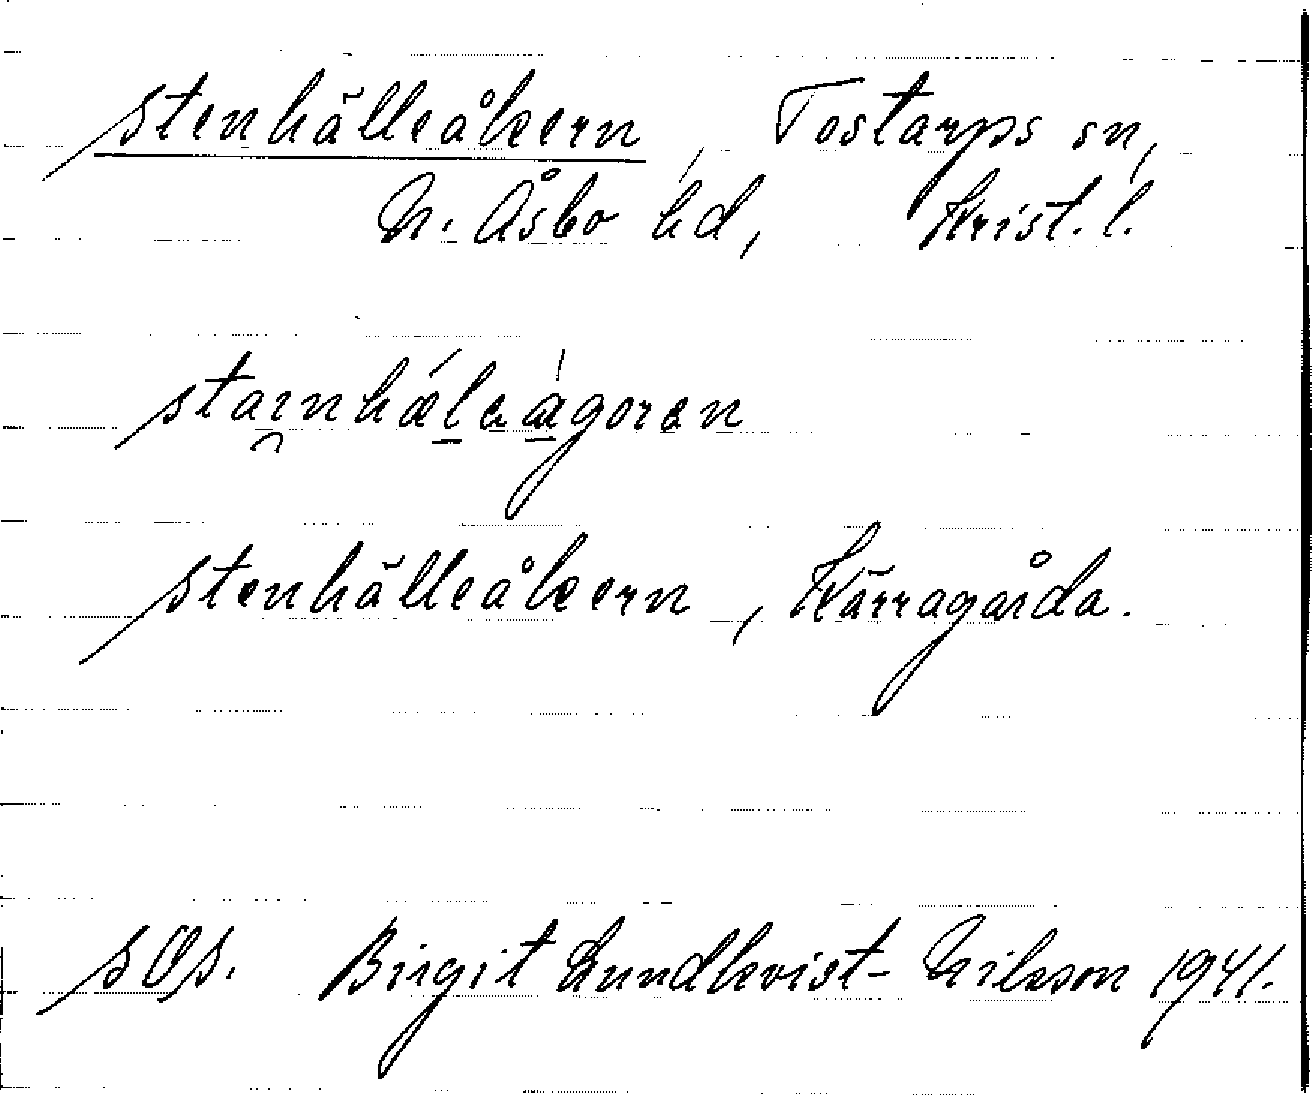 stenhälleåkern, Tostarps sn,
N. Åsbo hd, Krist. l.
staɪ̯nhǽl̠eá̠goran
stenhälleåkern, Kärragårda.
SOS. Birgit Lundkvist-Nilsson 1941.